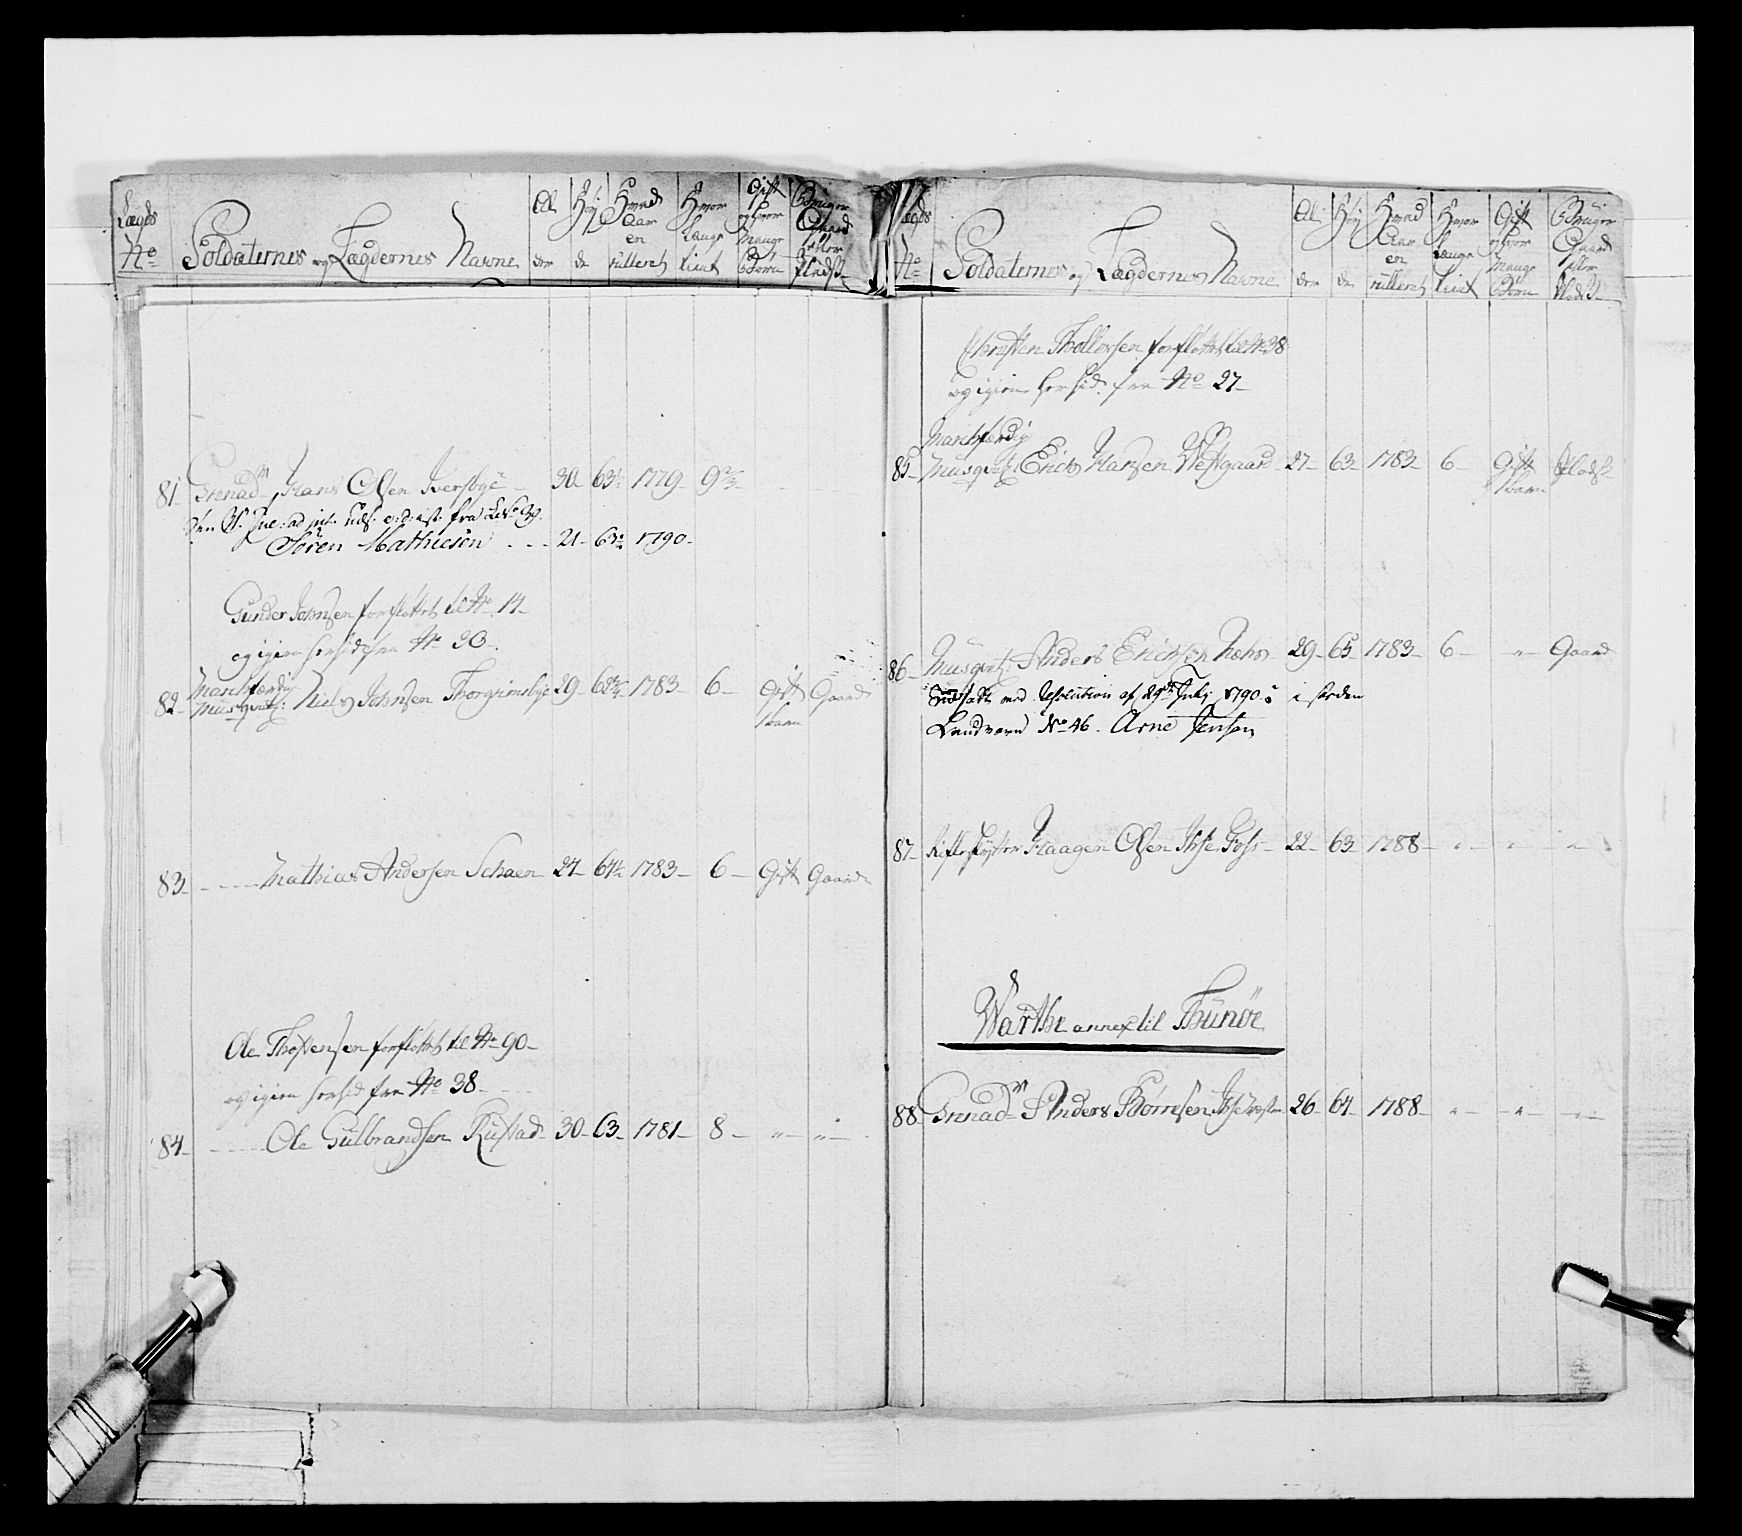 Lægds No
Soldaternes og Lægdernes Navne
Al der
Høy de
Hvad Aar en rulleret
Hvor Længe tient
Gift og hvor Mange Børn
Bruger Gaard eller Pladß
81 Grenadr Hans Olsen Iversbye - 30 - 63 1779 - 9
fra No 39.
Søren Mathiesen - - - 21 - 63 1790 -
Gunder Johnsen forfløttet til No 14 -
og igien hersid fra No 20.
Marchfærdig
82 - Musqvet: Niels Johnsen Thorgrimsbye 29 - 62 1783 - 6 - Gift Gaard
1 barn
83 - - - - Mathias Andersen Schaen - 24 - 64 1783 - 6 - Gift Gaard
Ole Thostensen forfløttet til No 90 -
og igien hersid fra No 38 -
84 - - - - Ole Gulbrandsen Rustad - 30 - 63 - 1781 - 8 - " - " -
Lægds No
Soldaternes og Lægdernes Navne
Al der
Høy de
Hvad Aar en rulleret
Hvor Længe tient
Gift og hvor Mange Børn
Bruger Gaard eller Pladß
Christen Thollefsen forfløttet til No 38
og igien hersid fra No 27 -
Marchfærdig
85 - Musqvet: Erich Hansen Westgaard - 27 - 63 - 1783 - 6 - Gift Pladß
1 barn
86 - Musqvet: Anders Erichsen 29 - 65 - 1783 - 6 - " - Gaard
Resolution af 29de July 1790: i steden
Landværn No 46. Arne Jensen
87 - Haagen Olsen 22 - 63 - 1788 - " - " - " -
Warthe annex til Thunøe
88 Grenadr Anders Børresen 26 - 64 - 1788 - " - " - " -